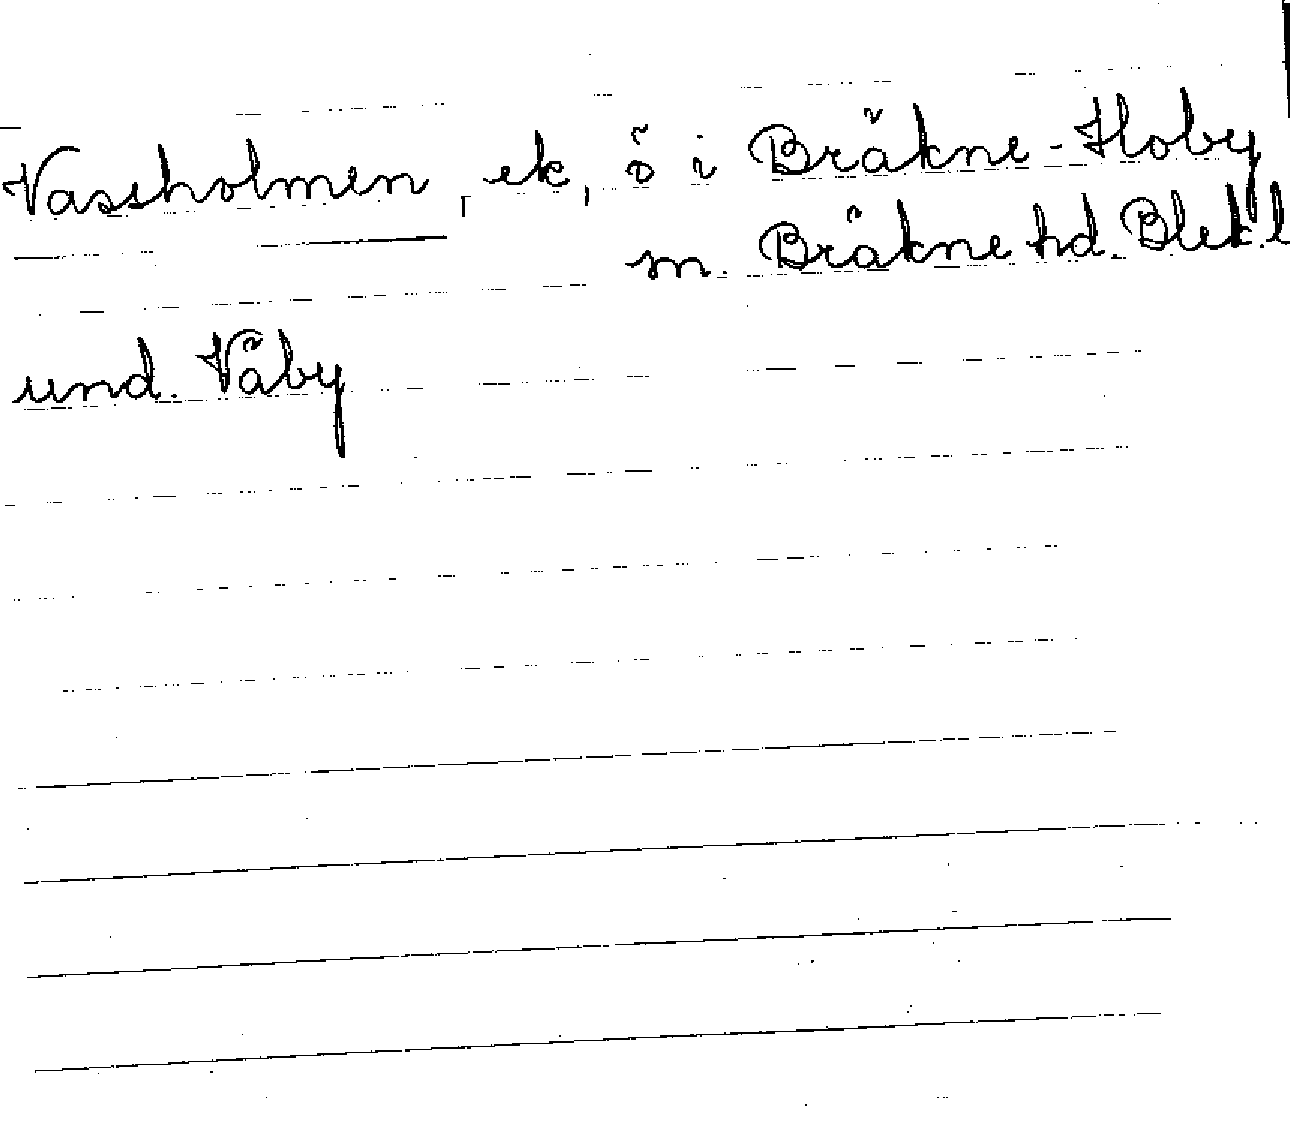 Vassholmen, ek, ö i Bräkne-Hoby
m. Bräkne hd. Blek.l
und. Väby